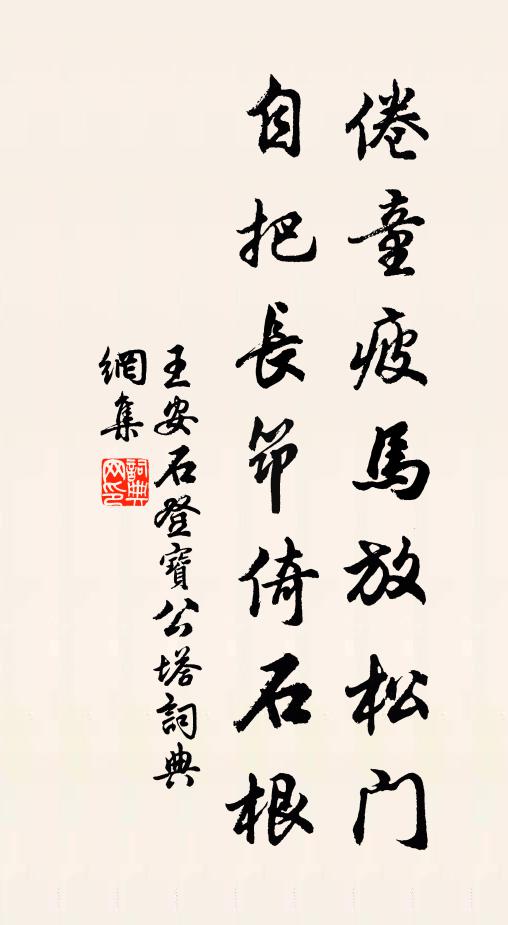 倦童疲馬放松門
自把長笻倚石根
王安石登寶公塔詞典
網集
詞典网印